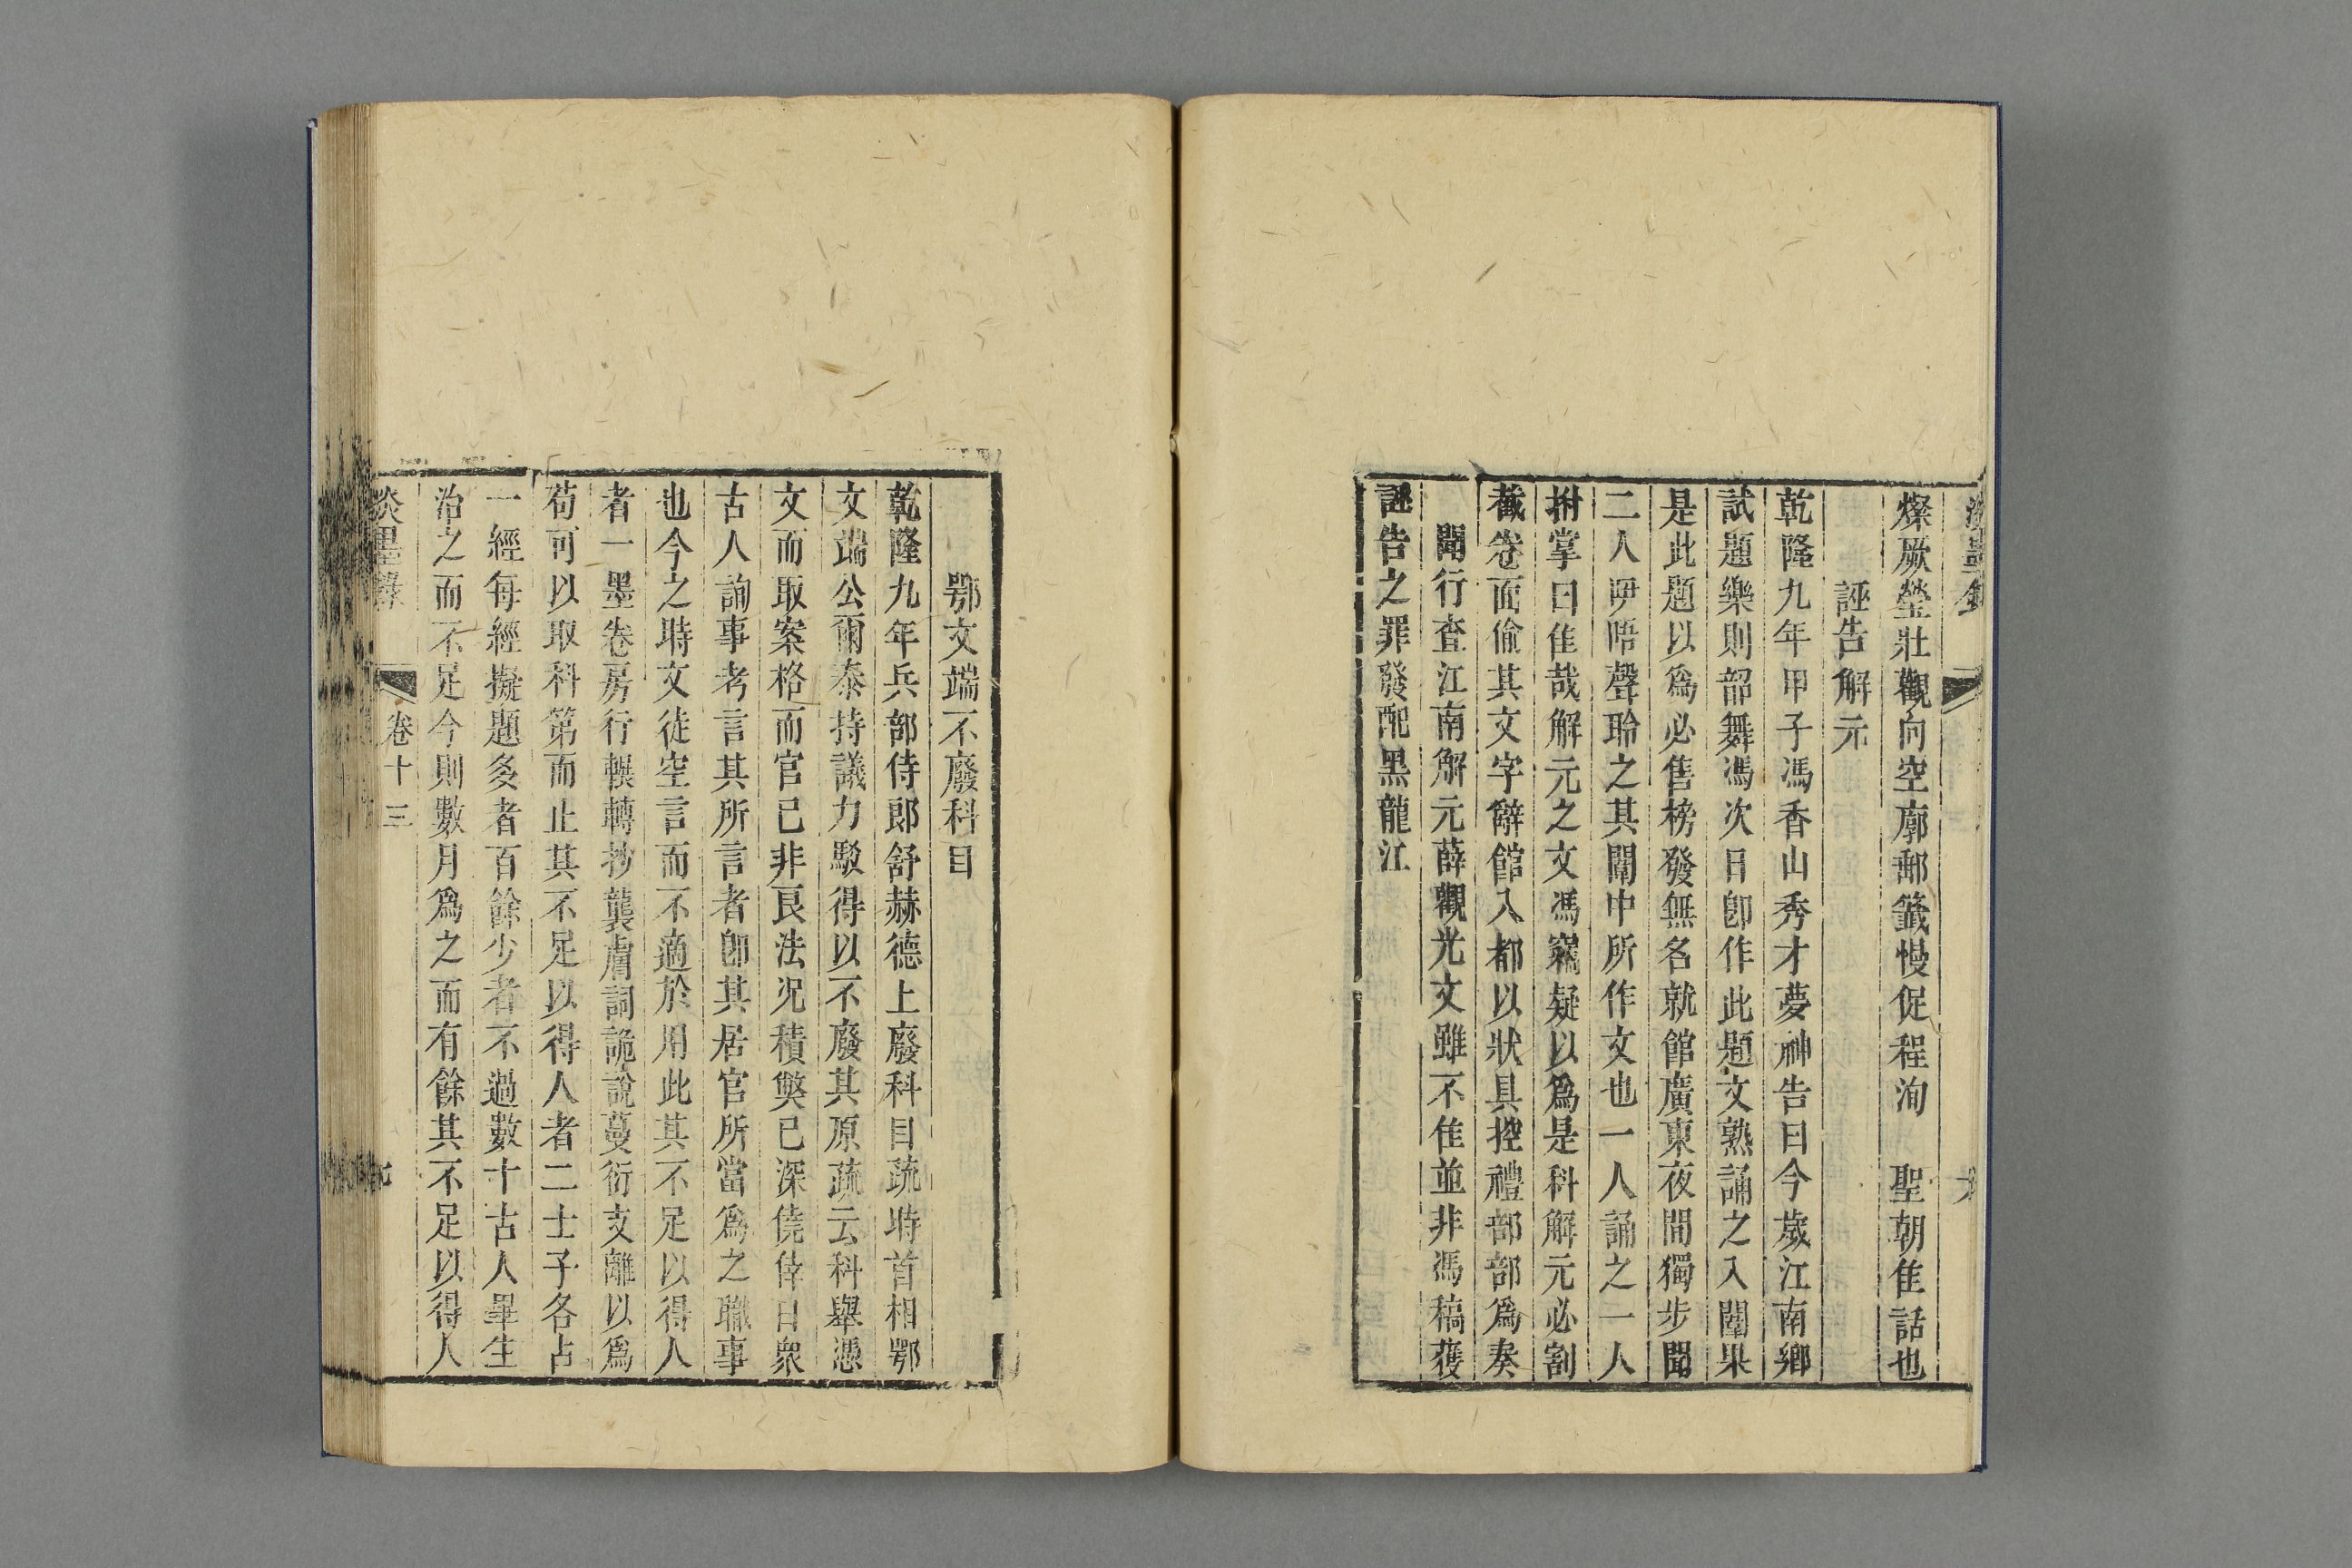 燦厥瑩壯觀向空廓郵籤慢促程洵　聖朝佳話也
誣告解元
乾隆九年甲子馮香山秀才夢神告曰今歲江南鄉
試題樂則韶舞馮次日卽作此題文熟誦之入闈果
是此題以爲必售榜發無名就館廣東夜間獨步聞
二人咿唔聲聆之其闈中所作文也一人誦之一人
拊掌曰佳哉解元之文馮竊疑以爲是科解元必割
截卷面偷其文字辭館入都以狀具控禮部部爲奏
聞行查江南解元薛觀光文雖不佳並非馮稿獲
誣告之罪發配黑龍江
鄂文端不廢科目
乾隆九年兵部侍郎舒赫德上廢科目疏時首相鄂
文端公爾泰持議力駁得以不廢其原疏云科舉憑
文而取案格而官已非良法況積獘已深僥倖日衆
古人詢事考言其所言者卽其居官所當爲之職事
也今之時文徒空言而不適於用此其不足以得人
者一墨卷房行輾轉抄襲膚詞詭說蔓衍支離以爲
苟可以取科第而止其不足以得人者二士子各占
一經每經擬題多者百餘少者不過數十古人畢生
治之而不足今則數月爲之而有餘其不足以得人
淡墨錄　卷十三